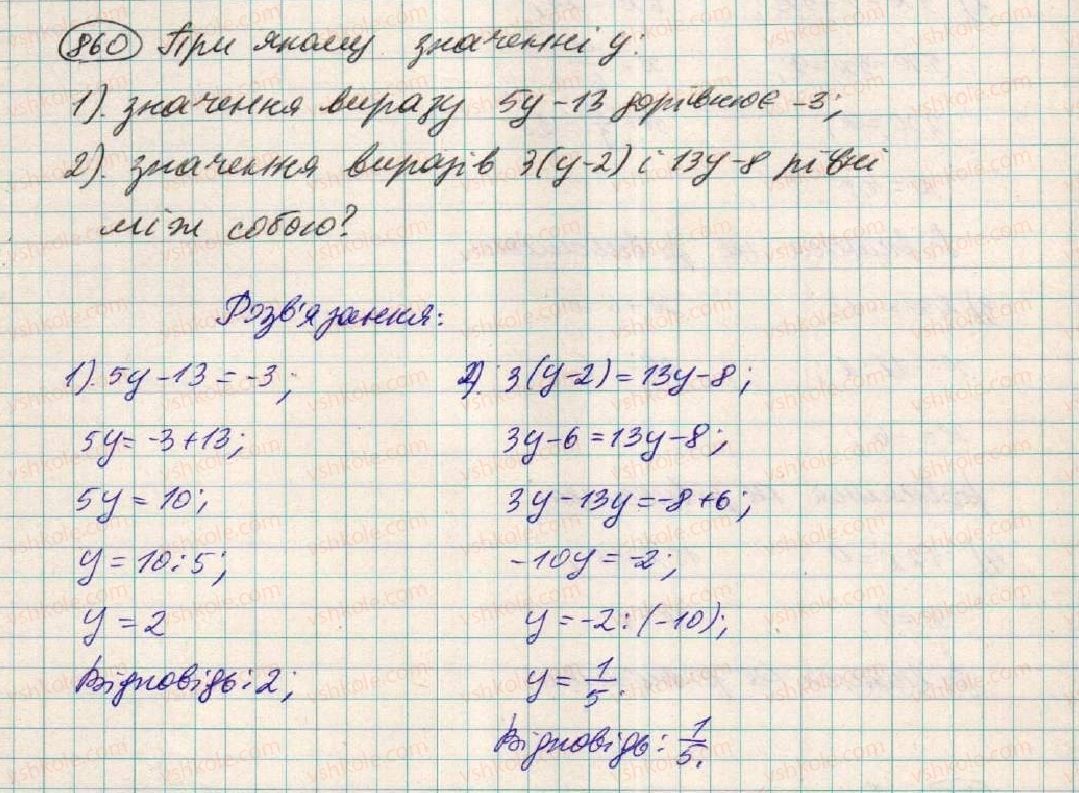 860 При якому значенні y:
1). значення виразу 5y-13 дорівнює -3;
2). значення виразів 3(y-2) і 13y-8 рівні
між собою?
Розв'язання:
1). 5y-13=-3;
5y=-3+13;
5y=10;
y=10:5;
y=2
Відповідь: 2;
2). 3(y-2)=13y-8;
3y-6=13y-8;
3y-13y=-8+6;
-10y=-2;
y=-2:(-10);
y=1/5.
Відповідь: 1/5.